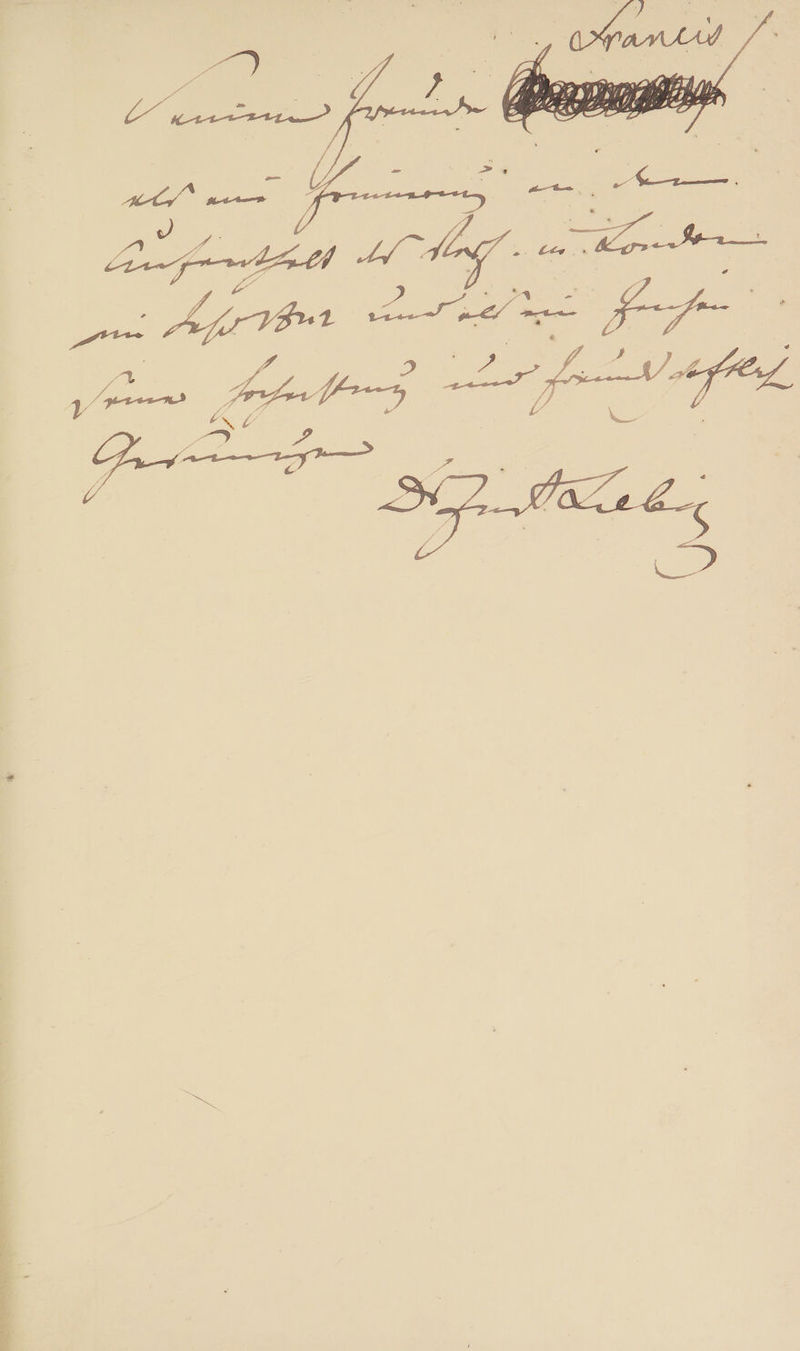 Francis
Seinem Freunde
als eine Erinnerung an den
Aufenthalt des Verf. in London
im und als ein Zeichen
seiner Hochachtung und freundschaftlich
Gesinnungen
Dr Just Liebig